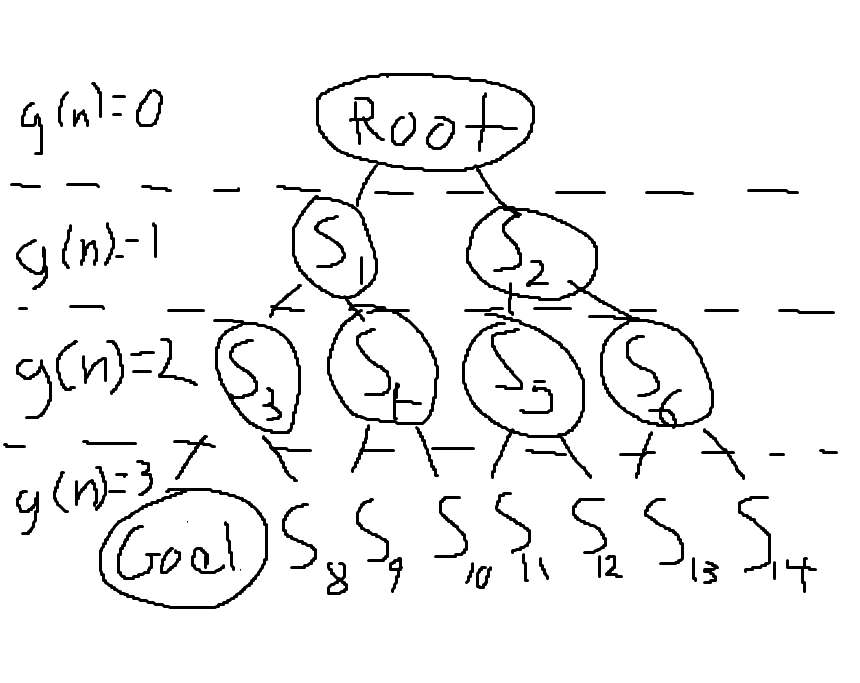 g(n)=0 Root
g(n)=1 S1 S2
g(n)=2 S3 S4 S5 S6
g(n)=3 Goal S8 S9 S10 S11 S12 S13 S14